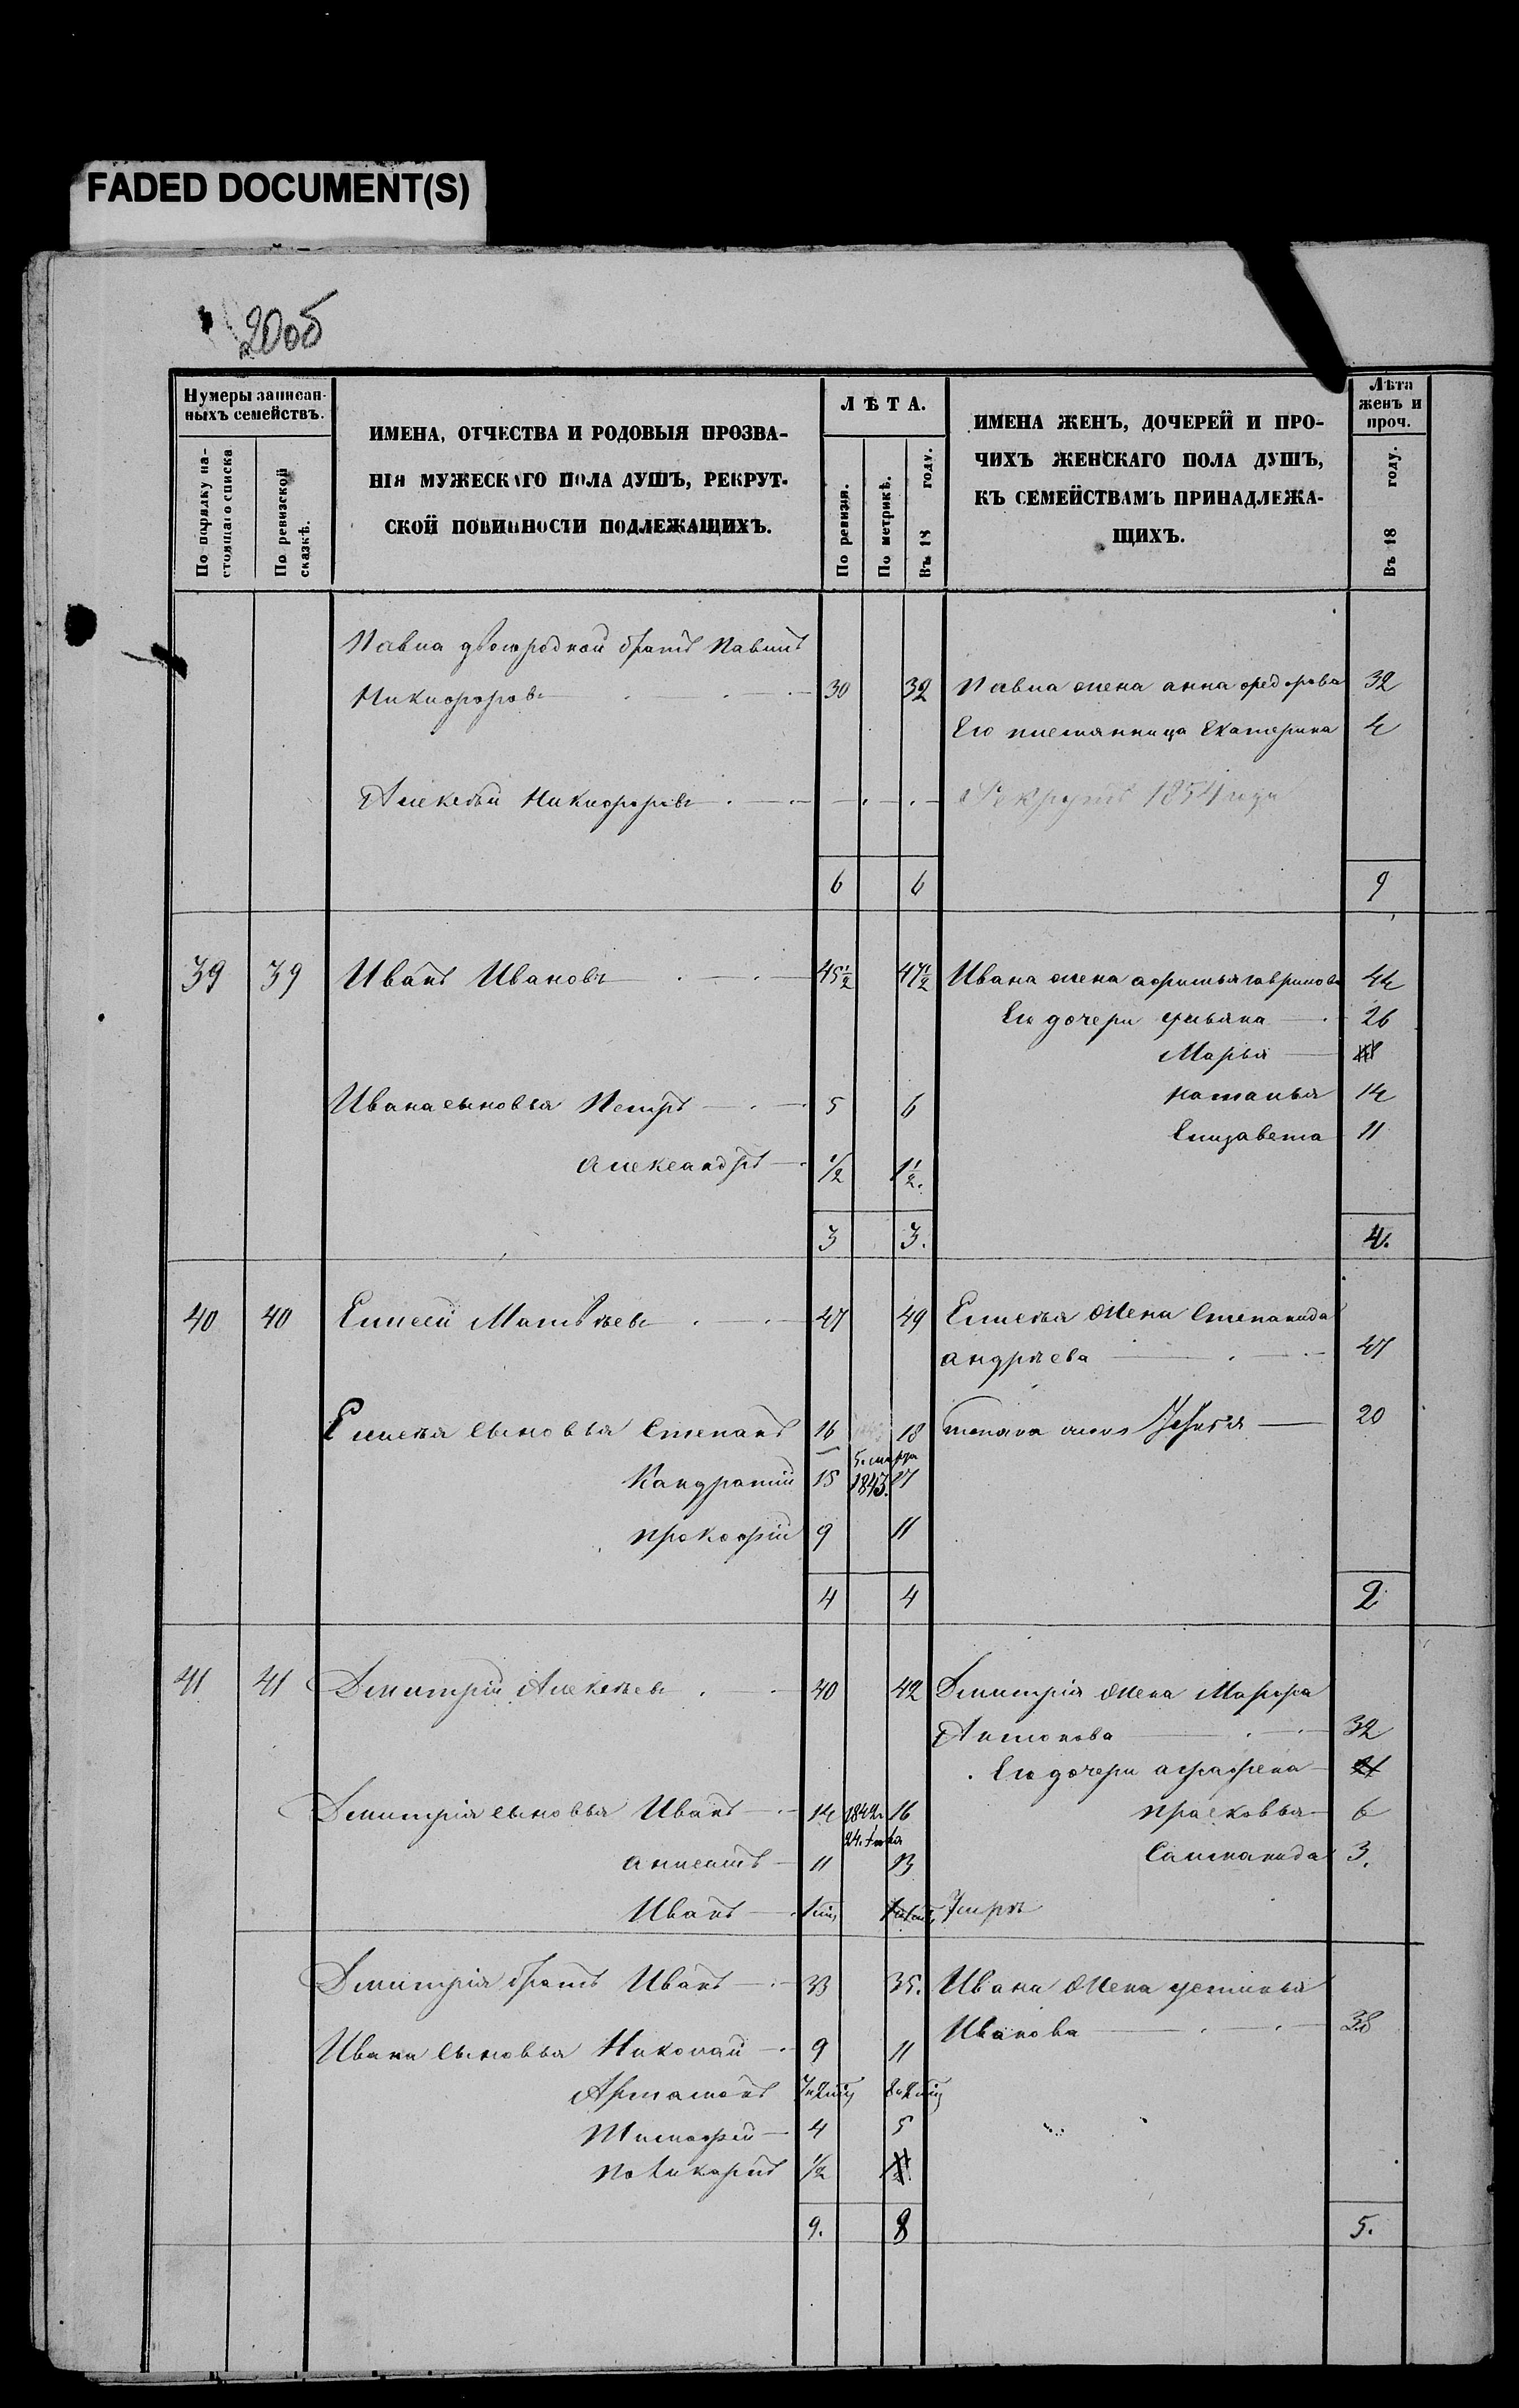 FADED DOCUMENT(S)
200б
Нумеры записан-
ныхъ семействъ.
По порядку на-
стоящаго списка
По ревизской
сказкѣ.
ИМЕНА, ОТЧЕСТВА И РОДОВЫЯ ПРОЗВА-
НІЯ МУЖЕСКАГО ПОЛА ДУШЪ, РЕКРУТ-
СКОЙ ПОВИННОСТИ ПОДЛЕЖАЩИХЪ.
ЛѢТА.
По ревизіи.
По метрикѣ.
Въ 18 году.
ИМЕНА ЖЕНЪ, ДОЧЕРЕЙ И ПРО-
ЧИХЪ ЖЕНСКАГО ПОЛА ДУШЪ,
КЪ СЕМЕЙСТВАМЪ ПРИНАДЛЕЖА-
ЩИХЪ.
Лѣта
женъ и
проч.
Въ 18 году.
Павла двоюродной братъ Павилъ
Никифоровъ 30 32 Павла жена анна федорова 32
Его племянница Екатерина 4
Алексѣй Никифоровъ Рекрутъ 1854 года
6 6 9
39 39 Иванъ Ивановъ 45½ 47½ Ивана жена афимья гаврилова 44
Его дочери ульяна 26
Марья
Ивана сыновья Петръ 5 6 наталья 14
Елизавета 11
александръ ½ 1½.
3 3. 4.
40 40 Елисей Матвѣевъ 47 49 Елисѣя жена степанида
андрѣева 47
Елисѣя сыновья степанъ 16 18 жена 20
5. марта
Кандратій 15 1843. 17
прокофій 9 11
4 4 2
41 41 Дмитрій Алексѣевъ 40 42 Дмитрія жена Марфа
Антонова 32
Его дочери аграфена
Дмитрія сыновья Иванъ 14 1842 16 прасковья 6
24.
11 13 3.
Иванъ Умръ
Дмитрія братъ Иванъ 33 35. Ивана жена устинья
Иванова 38
Ивана сыновья Николай 9 11
Артамонъ
Тимофей 4 5
поликарпъ ½
9. 8 5.